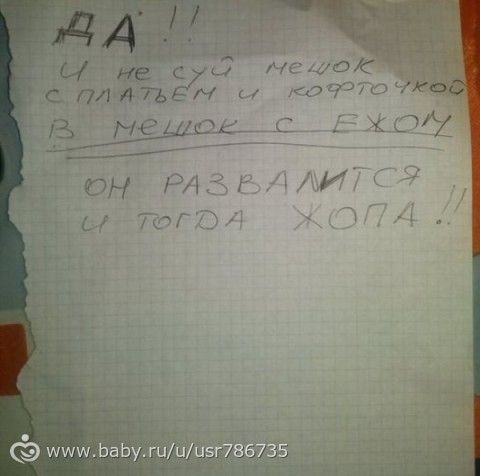 ДА!!
И не суй мешок
с платьем и кофточкой
В мешок с ЕЖОМ
ОН РАЗВАЛИТСЯ
и тогда ЖОПА!!
www.baby.ru/u/usr786735